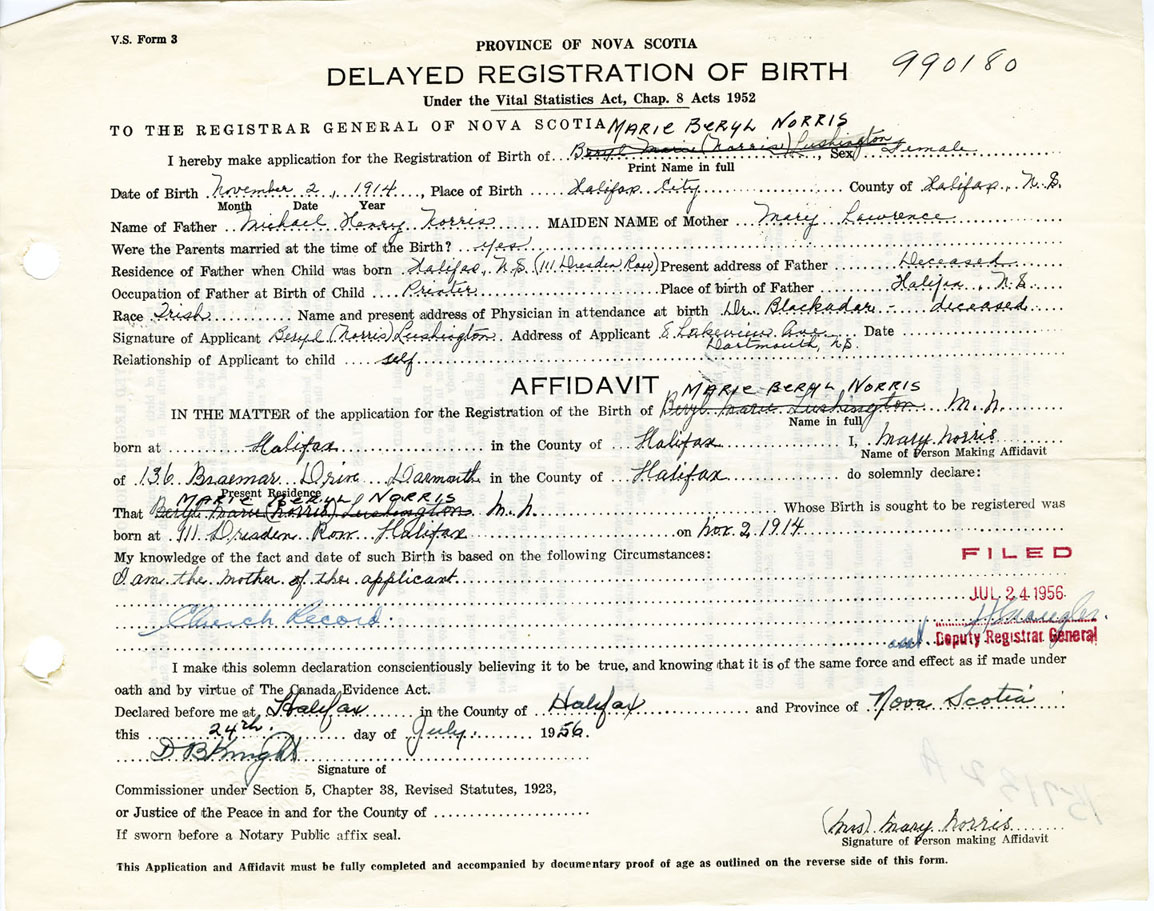 V.S. Form 3
PROVINCE OF NOVA SCOTIA
990180
DELAYED REGISTRATION OF BIRTH
Under the Vital Statistics Act, Chap. 8 Acts 1952
TO THE REGISTRAR GENERAL OF NOVA SCOTIA MARIE BERYL NORRIS
I hereby make application for the Registration of Birth of Beryl Marie (Norris) Lushington, Sex Female
Print Name in full
Date of Birth November 2, 1914, Place of Birth Halifax City County of Halifax, N.S.
Month Date Year
Name of Father Michael Henry Norris MAIDEN NAME of Mother Mary Lawrence
Were the Parents married at the time of the Birth? yes
Residence of Father when Child was born Halifax, N.S. (111 Dresden Row) Present address of Father Deceased
Occupation of Father at Birth of Child Printer Place of birth of Father Halifax, N.S.
Race Irish Name and present address of Physician in attendance at birth Dr. Blackadar - deceased
Signature of Applicant Beryl (Norris) Lushington. Address of Applicant Lakeview Ave. Date
Dartmouth, N.S.
Relationship of Applicant to child self
AFFIDAVIT MARIE BERYL NORRIS
IN THE MATTER of the application for the Registration of the Birth of Beryl Marie Lushington M.N.
Name in full
born at Halifax in the County of Halifax I, Mary Norris
Name of Person Making Affidavit
of 136 Braemar Drive Darmouth in the County of Halifax do solemnly declare:
Present Residence
MARIE BERYL NORRIS
That Beryl Marie (Norris) Lushington M.N. Whose Birth is sought to be registered was
born at 111 Dresden Row Halifax on Nov. 2, 1914
My knowledge of the fact and date of such Birth is based on the following Circumstances:
FILED
I am the mother of the applicant
JUL 24 1956
Church Record
Deputy Registrar General
I make this solemn declaration conscientiously believing it to be true, and knowing that it is of the same force and effect as if made under
oath and by virtue of The Canada Evidence Act.
Declared before me at Halifax in the County of Halifax and Province of Nova Scotia
this 24th day of July 1956.
D B Knight
Signature of
Commissioner under Section 5, Chapter 38, Revised Statutes, 1923,
or Justice of the Peace in and for the County of
If sworn before a Notary Public affix seal.
(Mrs) Mary Norris
Signature of Person making Affidavit
This Application and Affidavit must be fully completed and accompanied by documentary proof of age as outlined on the reverse side of this form.